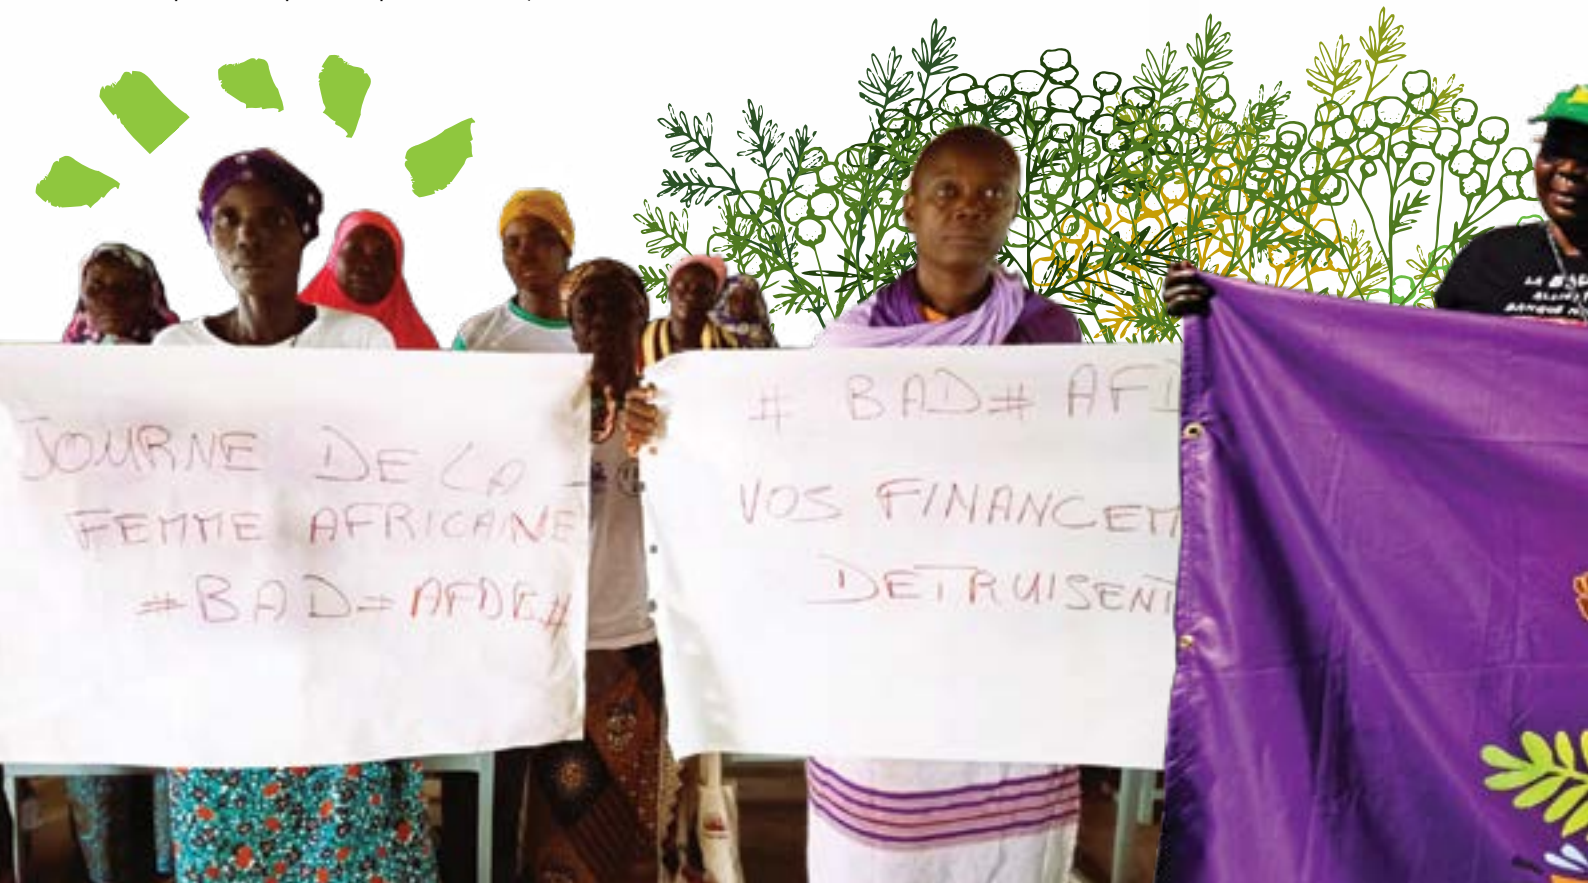 JOURNE DE LA
FEMME AFRICANE
#BAD# AFDB#
# BAD# AFD
VOS FINANCEM
DETRUISENT
LA